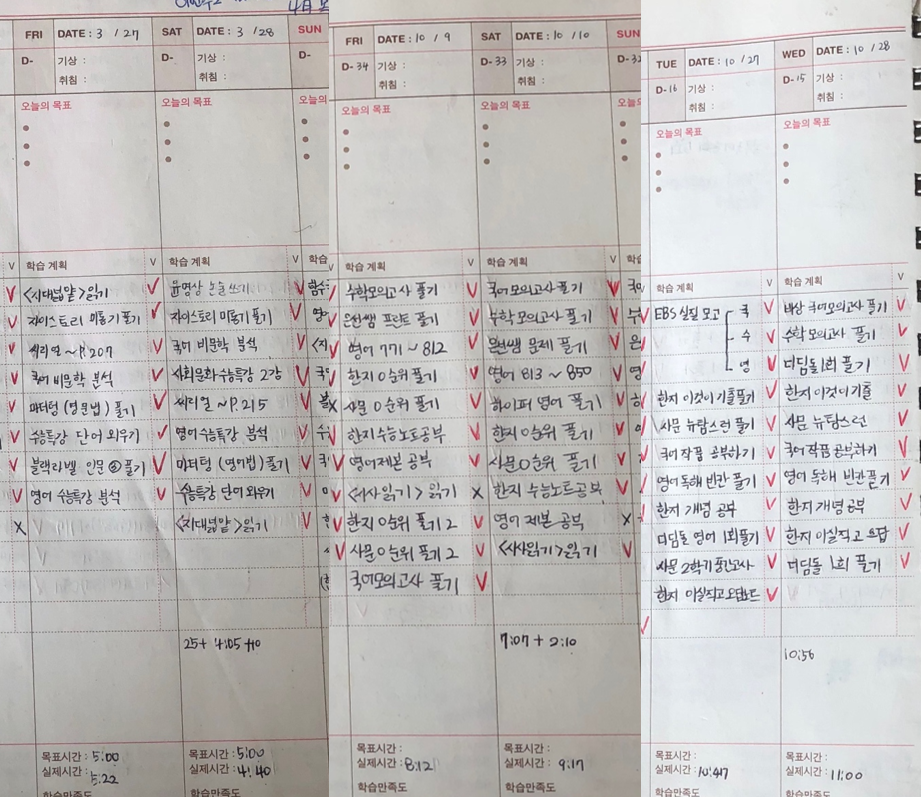 4月
FRI DATE : 3 / 27
D- 기상 :
취침 :
오늘의 목표
V 학습 계획 V
<지대넓얕>읽기
자이스토리 미통기 풀기
씨리얼 ~P.207
국어 비문학 분석
마더텅 (영문법) 풀기
수능특강 단어 외우기
블랙라벨 인문④ 풀기
영어 수능특강 분석
목표시간 : 5:00
실제시간 : 5:22
학습만족도
SAT DATE : 3 / 28
D- 기상 :
취침 :
오늘의 목표
학습 계획 V
윤명상 논술쓰기
자이스토리 미통기 풀기
국어 비문학 분석
사회문화수능특강 2강
씨리얼 ~P.215
영어수능특강 분석
마더텅 (영어법) 풀기
수능특강 단어 외우기
<지대넓얕>읽기
25+ 4:05 +10
목표시간 : 5:00
실제시간 : 4:40
학습만족도
SUN
D-
오늘의
학습
FRI DATE : 10 / 9
D-34 기상 :
취침 :
오늘의 목표
V 학습 계획 V
수학모의고사 풀기
은선쌤 프린트 풀기
영어 771 ~ 812
한지 0순위 풀기
사문 0순위 풀기
한지수능노트공부
영어제본 공부
<서사읽기> 읽기
한지 0순위 풀기 2
사문 0순위 풀기 2
국어모의고사 풀기
목표시간 :
실제시간 : 8:12
학습만족도
SAT DATE : 10 / 10
D-33 기상 :
취침 :
오늘의 목표
학습 계획 V
국어모의고사 풀기
수학 모의고사 풀기
은선쌤 문제 풀기
영어 813 ~ 850
하이퍼 영어 풀기
한지 0순위 풀기
사문0순위 풀기
한지 수능노트공부
영어 제본 공부
<서사읽기>읽기
7:07 + 2:10
목표시간 :
실제시간 : 9:17
학습만족도
SUN
D-32
오늘의
학습
TUE DATE : 10 / 27
D-16 기상 :
취침 :
오늘의 목표
V 학습 계획 V
EBS 실질 모고 국
수
영
한지 이것이 기출풀기
사문 뉴탐스런 풀기
국어 작품 공부하기
영어독해 빈칸 풀기
한지 개념 공부
더딤돌 영어 1회풀기
사문 2학기 중간고사
한지 이실직고 오답노트
목표시간 :
실제시간 : 10:47
학습만족도
WED DATE : 10 / 28
D-15 기상 :
취침 :
오늘의 목표
학습 계획 V
바상 국어모의고사 풀기
수학 모의고사 풀기
더딤돌1회 풀기
한지 이것이 기출
사문 뉴탐스런
국어작품 공부하기
영어 독해 빈칸풀기
한지개명공부
한지 이실직고 오답
더딤돌 1회 풀기
10:56
목표시간 :
실제시간 : 11:00
학습만족도